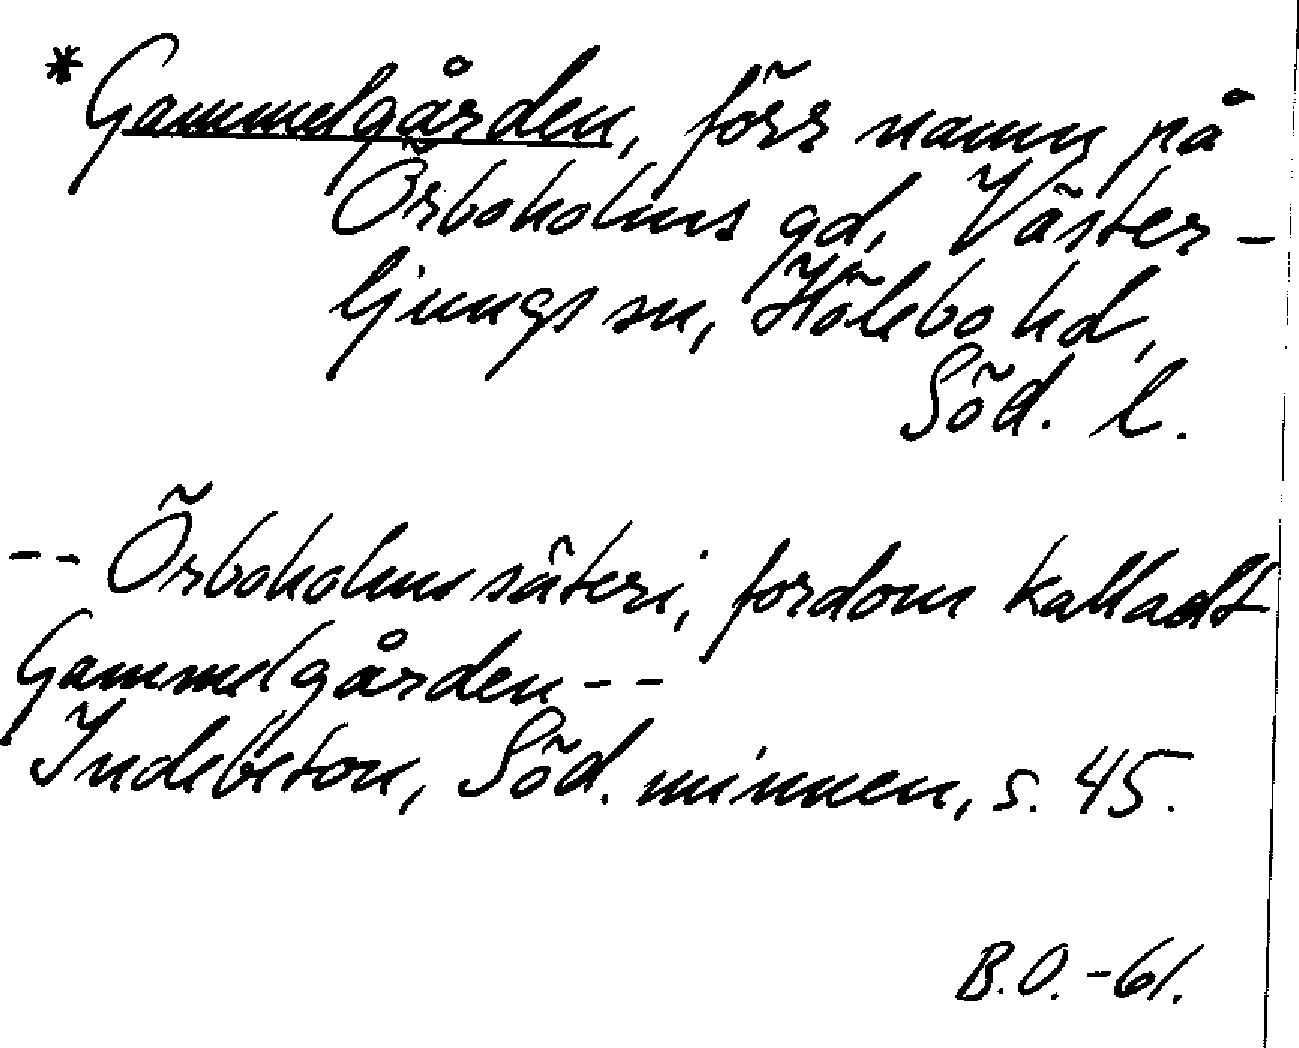 *Gammelgården, förr namn på
Örboholms gd, Väster-
ljungs sn, Hölebo hd,
Söd. l.
-- Örboholms säteri, fordom kalladt
Gammelgården--
Indebetou, Söd. minnen, s. 45.
B.O.-61.